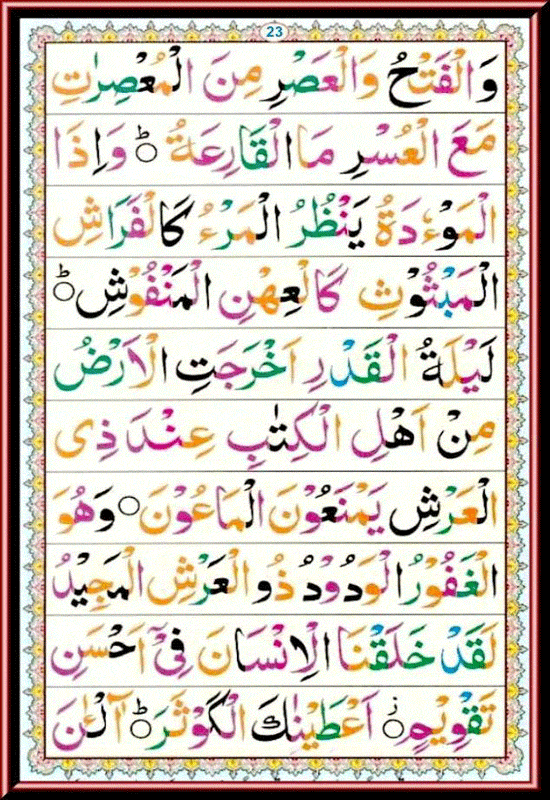 23
وَالْفَتْحُ وَالْعَصْرِ مِنَ الْمُعْصِرٰتِ
مَعَ الْعُسْرِ مَا الْقَارِعَةُ ○ؕ وَاِذَا
الْمَوْءٗدَةُ يَنْظُرُ الْمَرْءُ كَالْفَرَاشِ
الْمَبْثُوْثِ كَالْعِهْنِ الْمَنْفُوْشِ ○ؕ
لَيْلَةُ الْقَدْرِ اَخْرَجَتِ الْاَرْضُ
مِنْ اَهْلِ الْكِتٰبِ عِنْدَ ذِى
الْعَرْشِ يَمْنَعُوْنَ الْمَاعُوْنَ ○ وَهُوَ
الْغَفُوْرُ الْوَدُوْدُ ذُو الْعَرْشِ الْمَجِيْدُ
لَقَدْ خَلَقْنَا الْاِنْسَانَ فِىْٓ اَحْسَنِ
تَقْوِيْمٍ ○ز اَعْطَيْنٰكَ الْكَوْثَرَ ○ؕ آلْـٰٔنَ